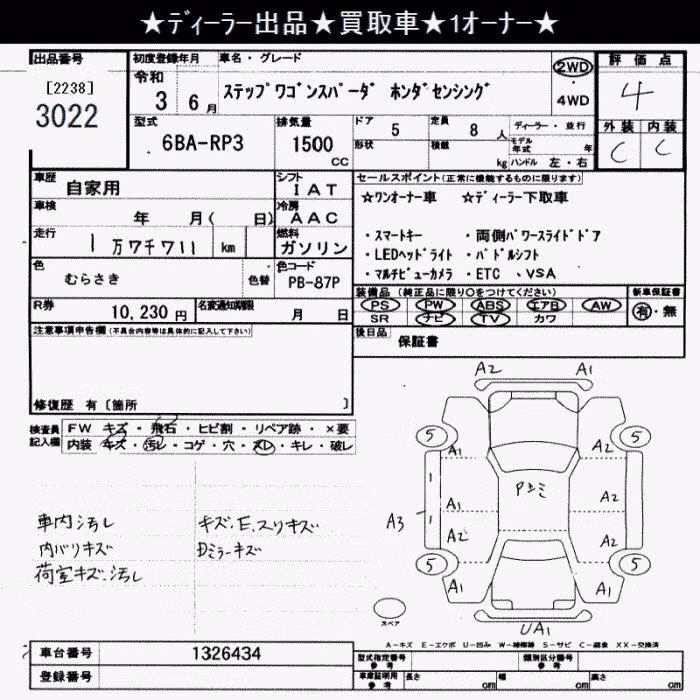 ★ディーラー出品★買取車★1オーナー★
出品番号
[2238]
3022
初度登録年月
車名・グレード
令和
3 6月
ステップワゴンスパーダ ホンダセンシング
2WD
4WD
評価点
4
外装 内装
C C
型式
6BA-RP3
排気量
1500
cc
ドア
5
定員
8 人
形状
積載
kg
ディーラー・並行
モデル年式 年
ハンドル 左・右
車歴
自家用
シフト
IAT
車検
年 月( 日)
冷房
AAC
走行
1万7千711 km
燃料
ガソリン
色
むらさき
色替
色コード
PB-87P
R券
10,230円
名変通知期限
月 日
セールスポイント(正常に機能するものに限ります)
★ワンオーナー車 ★ディーラー下取車
・スマートキー ・両側パワースライドドア
・LEDヘッドライト ・パドルシフト
・マルチビューカメラ ・ETC 、VSA
装備品(純正品に限り○をつけてください)
新車保証書
PS PW ABS エアB AW
SR ナビ TV カワ
有・無
後日品
保証書
注意事項申告欄(不具合内容等は具体的に記入して下さい)
修復歴 有〔箇所 〕
検査員記入欄
FW キズ・飛石・ヒビ割・リペア跡・×要
内装 キズ・汚レ・コゲ・穴・スレ・キレ・破レ
車内汚レ
内バリキズ
荷室キズ・汚レ
キズ、E、スリキズ
Dミラーキズ
A2 A1
5 5
A1 A2
1
Pシミ
A1 A2
1
A3
A2 A2
5 5
A1 A1
UA1
スペア
A-キズ E-エクボ U-凹み W-補修跡 S-サビ C-腐食 XX-交換済
車台番号
1326434
登録番号
型式指定番号
参考
類別区分番号
参考
車庫証明用
参考
長さ cm
幅 cm
高さ cm